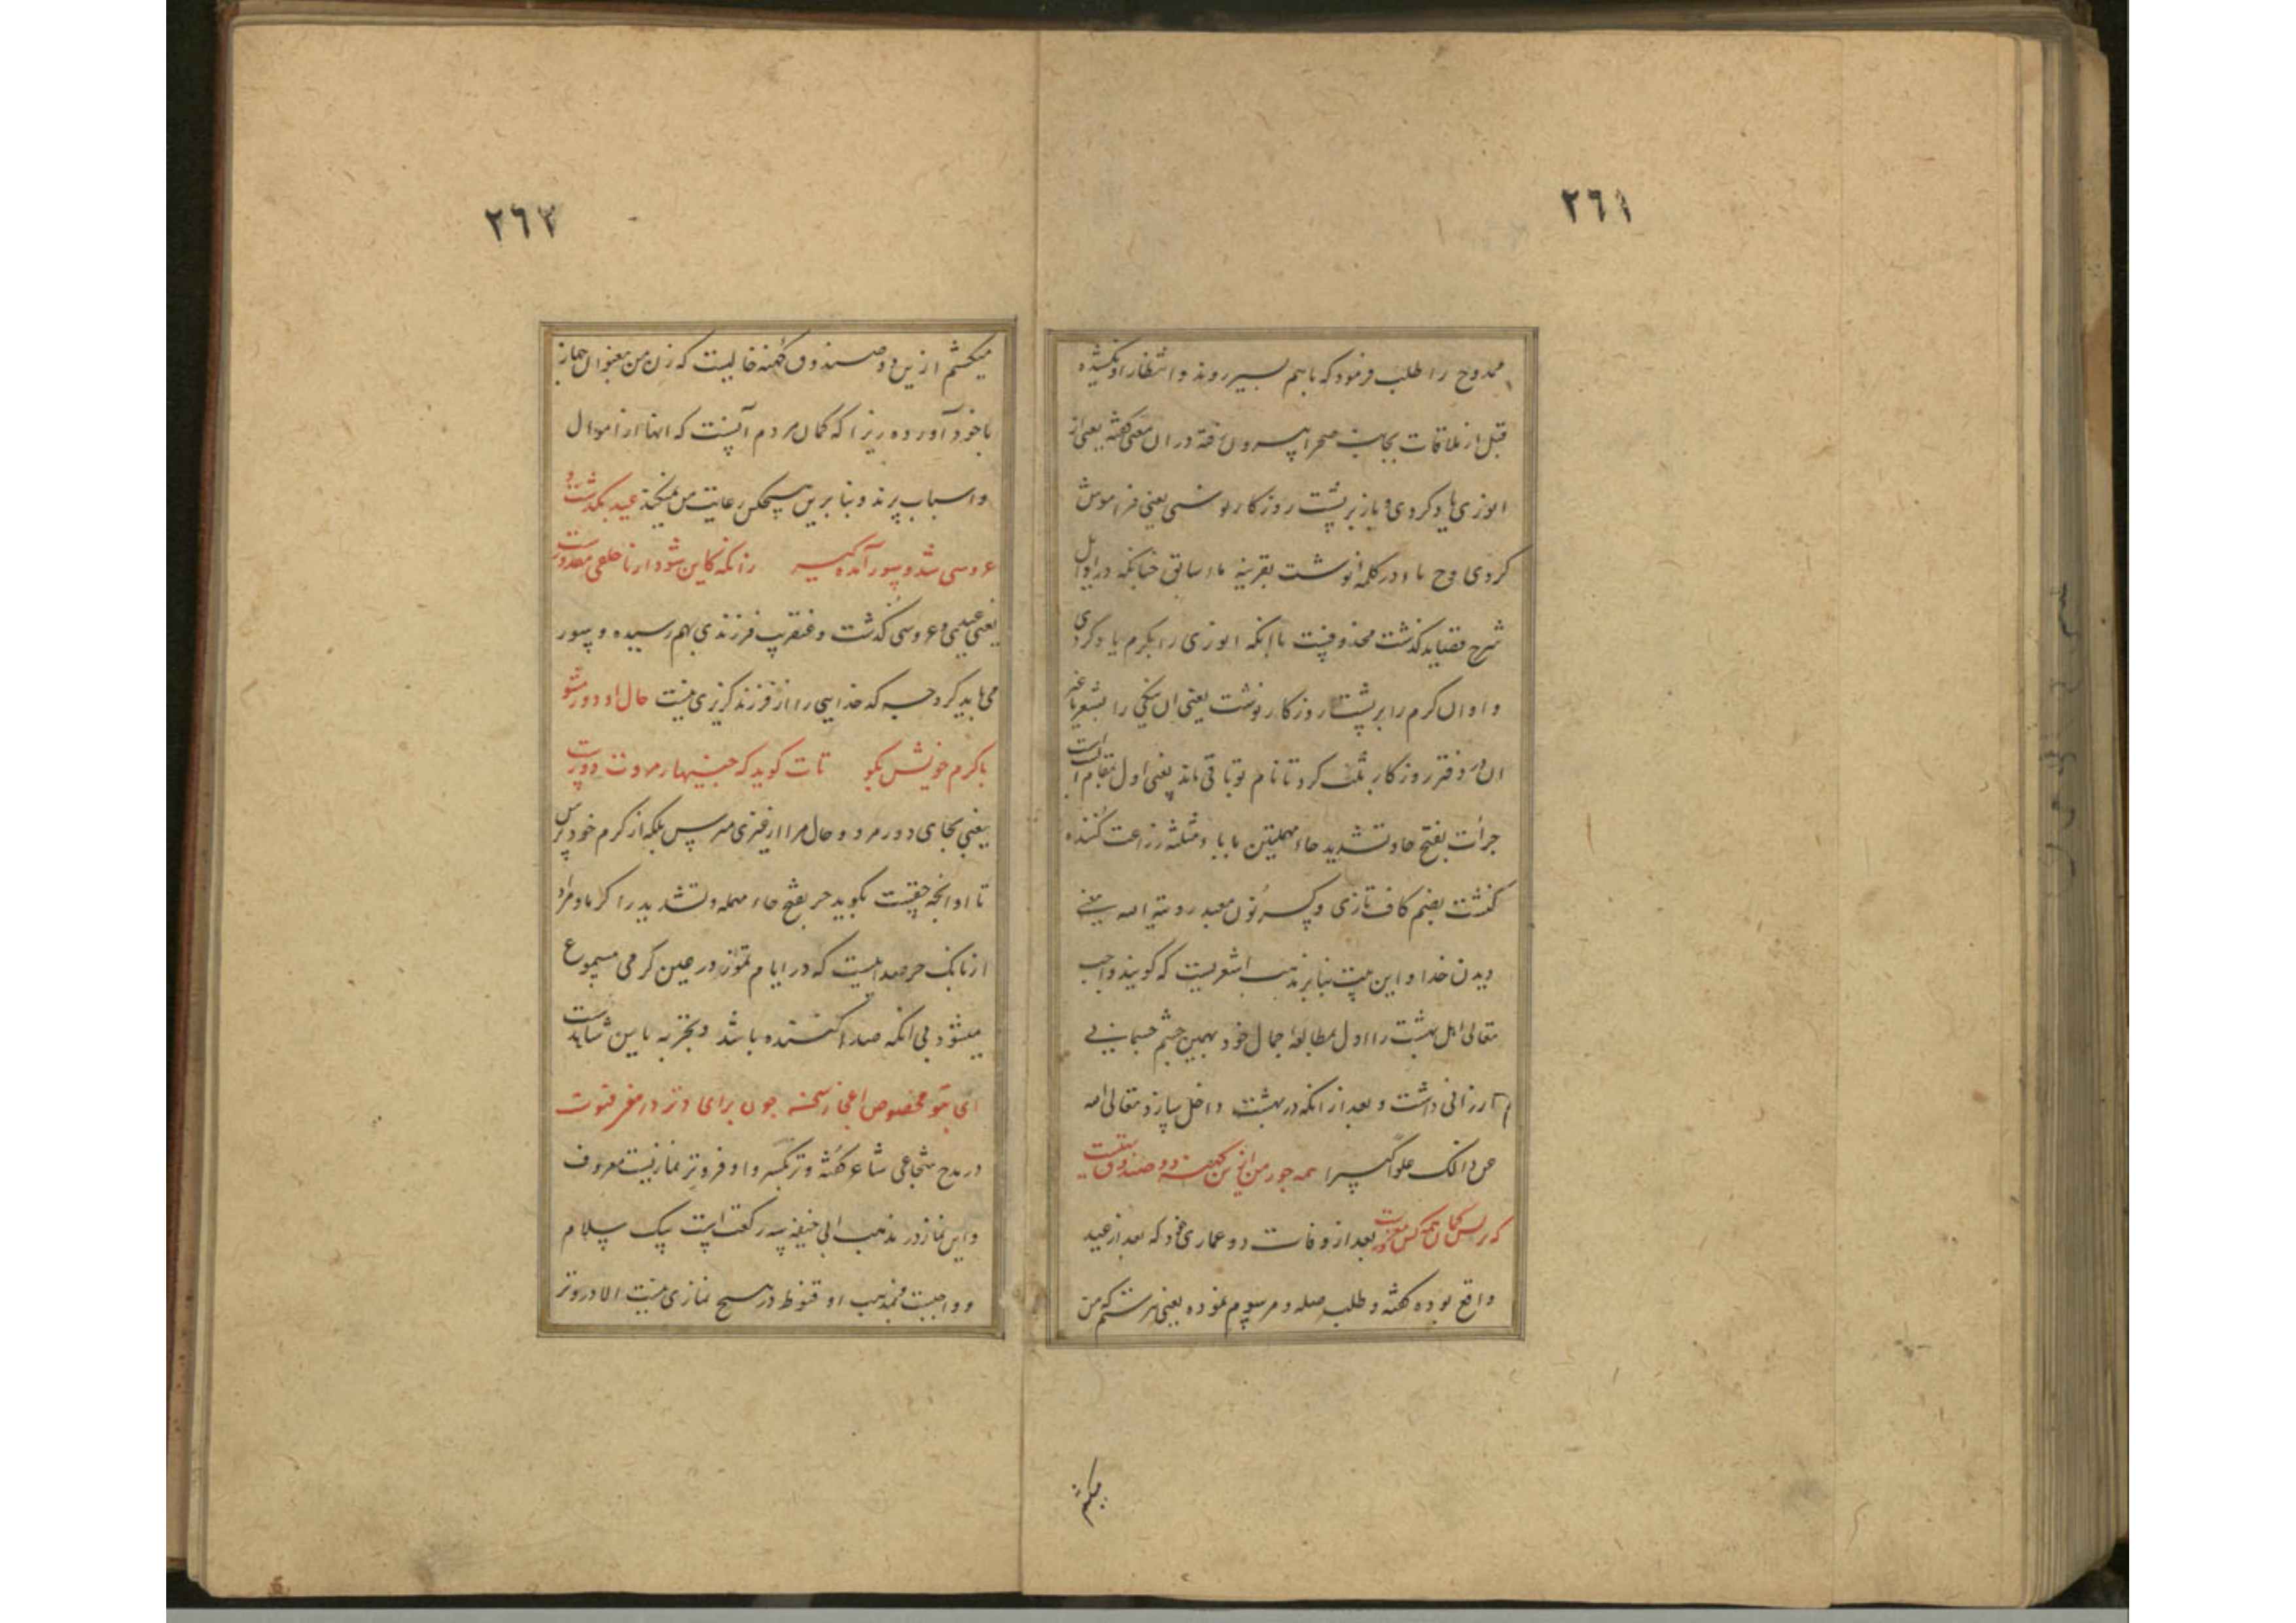 ٢٦١
ممدوح را طلب فرمود که باهم بسیر روند و انتظار او نکشیده
قبل از ملاقات بجانب صحرا بیرون رفته در ان معنی گفته یعنی از
انوری یاد کردی و باز بر پشت روزگار نوشتی یعنی فراموش
کردی و باء در کلمه نوشت بقرینه ماء سابق چنانکه در اوایل
شرح قصاید گذشت محذوفست باآنکه انوری را بکرم یاد کردی
و او ان کرم را بر پشت روزگار نوشت یعنی ان نیکی را
ان در دفتر روزگار ثبت کرد تا نام تو باقی ماند یعنی اول
حراث بفتح حا و تشدید حاء مهملتین باباء مثلثه زراعت کننده
کنشت بضم کاف تازی و کسر نون معبد رویة الله یعنی
دیدن خدا و این بیت بنابر مذهب اشعریست که گویند واجب
تعالی اهل بهشت را اول بمطالعه جمال خود بهمین چشم جسمانی
ارزانی داشت و بعد از انکه در بهشت داخل سازد تعالی الله
عن ذالک علوا کبیرا همه جور من ازین کهنه دو صندوق تهیست
که بعد از وفات دو عماری خود که بعد از عید
واقع بوده گفته و طلب صله و مرسوم نموده یعنی هر ستم که من
میکشم
٢٦٢
میکشم ازین دو صندوق کهنه خالیست که زن من بعنوان جهاز
باخود آورده زیرا که کمان مردم آنست که اینها از اموال
و اسباب پرند و بنا برین هیچکس رعایت من نمیکند عید بگذشت و
عروسی شد و سور آمده گیر زانکه کاین شود از ناخلفی مقدورست
یعنی عیدی و عروسی گذشت و عنقریب فرزندی بهم رسیده و سور
می باید کرد چه که خدایی را از فرزند گزیری نیست حال او دور مشو
باکرم خویش بگو تات گوید که
یعنی بجای دور مرو و حال مرا از غیری مپرس بلکه از کرم خود بپرس
تا او انچه حقیقت بگوید حر بفتح حاء مهمله و تشدید را گرما و مراد
از بانک حر صداییست که در ایام تموز در عین گرمی مسموع
میشود بی انکه صدا کننده باشد و تجربه باین شاهدست
ای بتو مخصوص اعجاز سخن چون برای وتر در مغز قنوت
در مدح شجاعی شاعر گفته وتر بکسر واو فرد و وتر نمازیست معروف
و این نماز در مذهب ابی حنیفه سه رکعت است بیک سلام
و واجبست بمذهب او قنوط در هیچ نمازی نیست الا در وتر